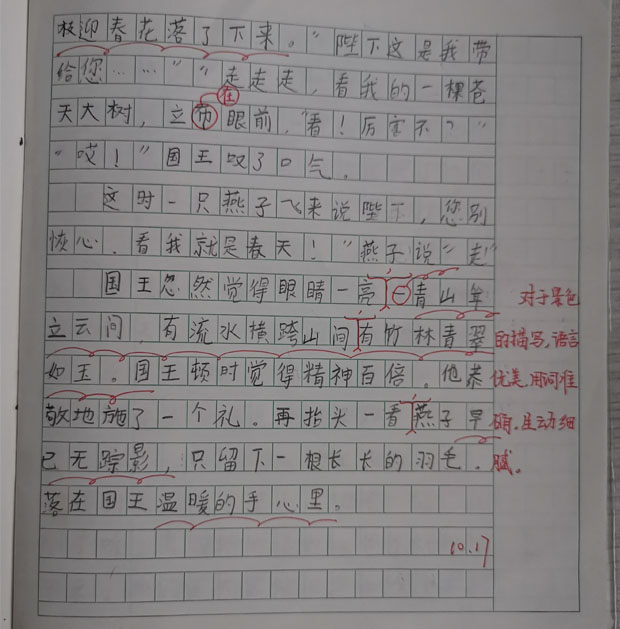 枝迎春花落了下来。"陛下这是我带
给您……""走走走，看我的一棵苍
在
天大树，立布眼前，"看！厉害不？"
"哎！"国王叹了口气.
这时一只燕子飞来说陛下，您别
恢心.看我就是春天！"燕子说"走"
国王忽然觉得眼睛一亮青山年
立云间，有流水横跨山间有竹林青翠
如玉。国王顿时觉得精神百倍。他恭
敬地施了一个礼。再抬头一看燕子早
已无踪影，只留下一根长长的羽毛.
落在国王温暖的手心里。
对于景色
的描写,语言
优美,用词准
确,生动细
腻。
10.17